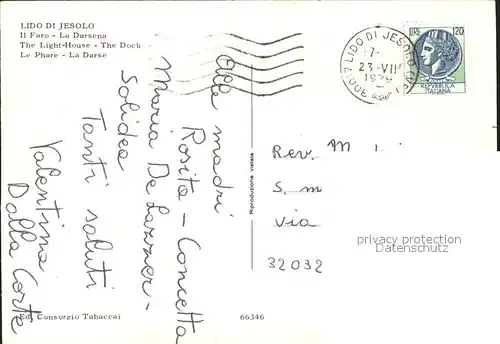 LIDO DI JESOLO
Il Faro - La Darsena
The Light-House - The Dock
Le Phare - La Darse
LIDO DI JESOLO
7-
23-VII
LIRE 120
REPVBBLICA
ITALIANA
Alle madri
Rosita - Concetta
Maria De Lazzer -
Solidea
Tanti saluti
Valentina
Dalla Corte
Riproduzione vietata
Rev. M
S. m
Via
32032
privacy protection
veikkos-archiv
Ed. Consorzio Tabaccai
66346